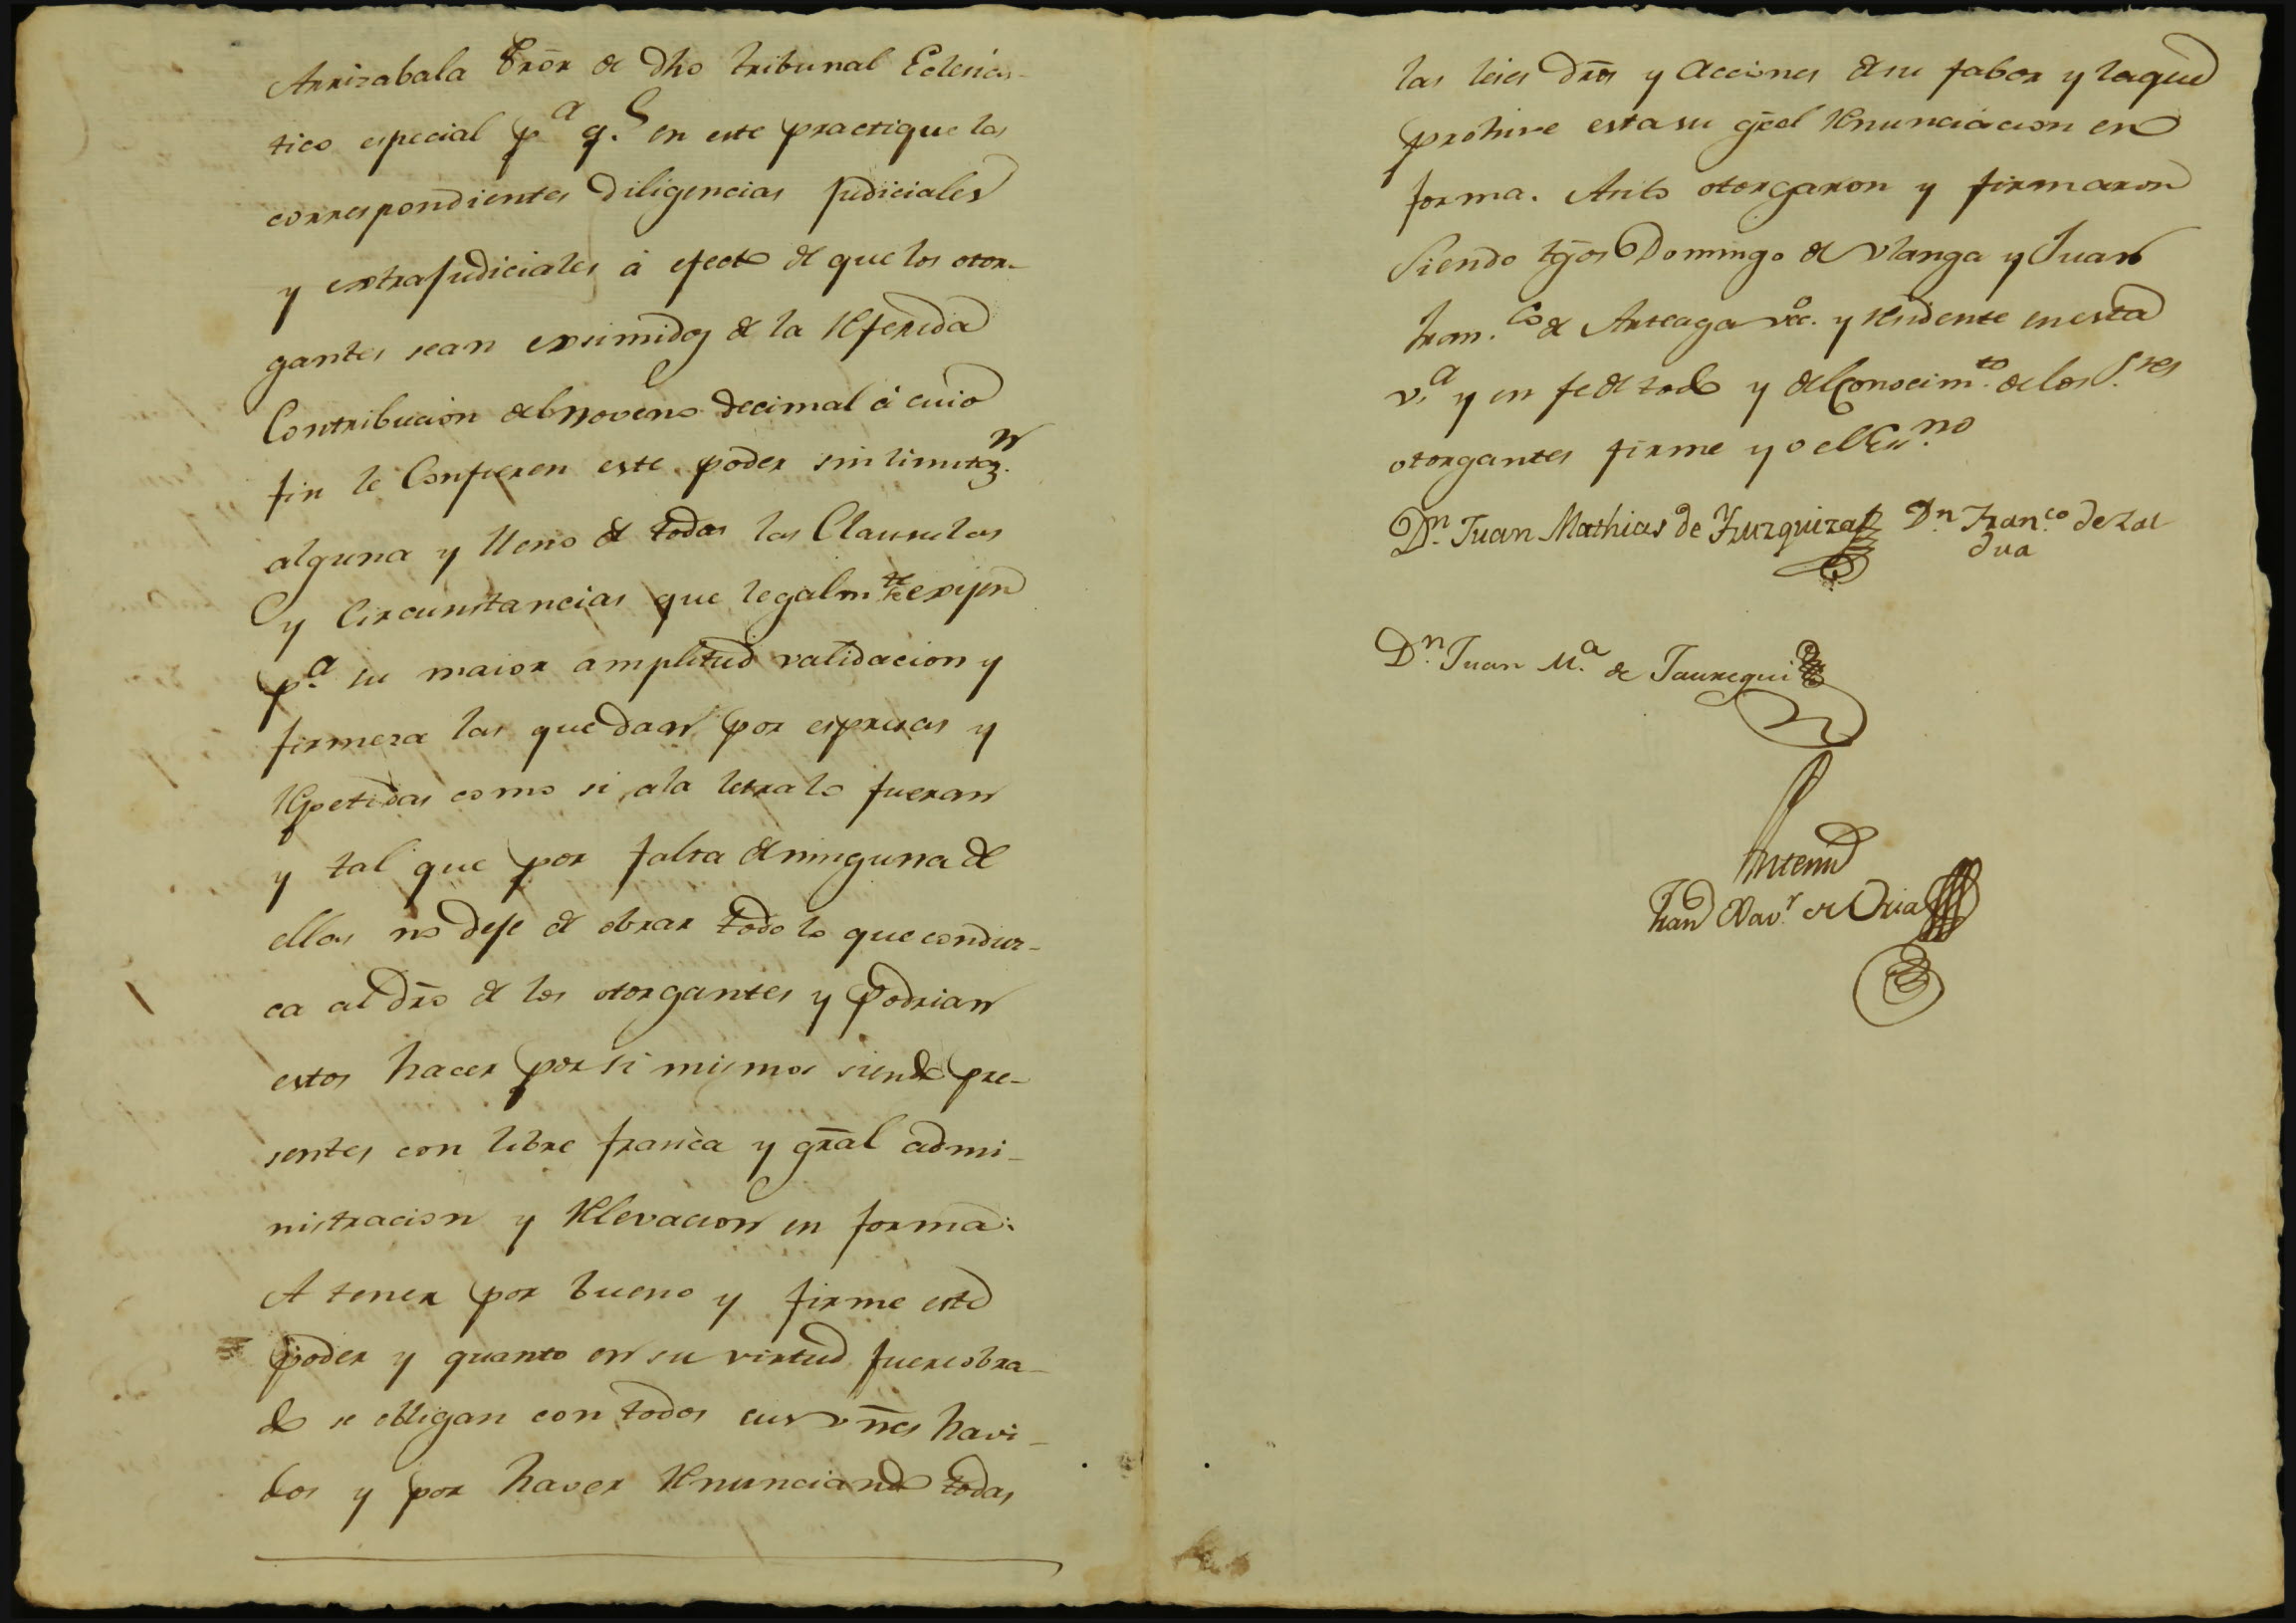 Arrizabala Prōr de dh̃o tribunal Eclesias-
tico especial p.ª q.e en este practique las
correspondientes diligencias judiciales
y extrajudiciales á efecto de que los otor-
gantes sean exsimidos de la Referida
Contribucion del noveno decimal á cuio
fin le Confieren este poder sin limitaz.n
alguna y lleno de todas las Clausulas
y Circunstancias que legalm.te exijen
p.ª su maior amplitud validacion y
firmeza las que dan por espresas y
Repetidas como si ala letra lo fueran
y tal que por falta de ninguna de
ellas no deje de obrar todo lo que conduz-
ca al dr̃o de los otorgantes y podrian
estos hacer por si mismos siendo pre-
sentes con libre franca y gr̃al admi-
nistracion y Relevacion en forma:
A tener por bueno y firme este
poder y quanto en su virtud fuere obra-
do se obligan con todos sus vñes havi-
dos y por haver Renunciando todas
las leies dr̃os y acciones de su fabor y la que
prohive esta su gr̃al Renunciacion en
forma. Asi lo otorgaron y firmaron
Siendo tg̃os Domingo de Vlanga y Juan
Fran.co de Arteaga vec.o y residente en esta
v.ª y en fe de todo y del Conocim.to de los S.res
otorgantes firme yo el Es.no
D.n Juan Mathias de Yurquiza D.n Fran.co de Zal
dua
D.n Juan M.ª de Jauregui
Ante mi
Fran Xav.r de Oria